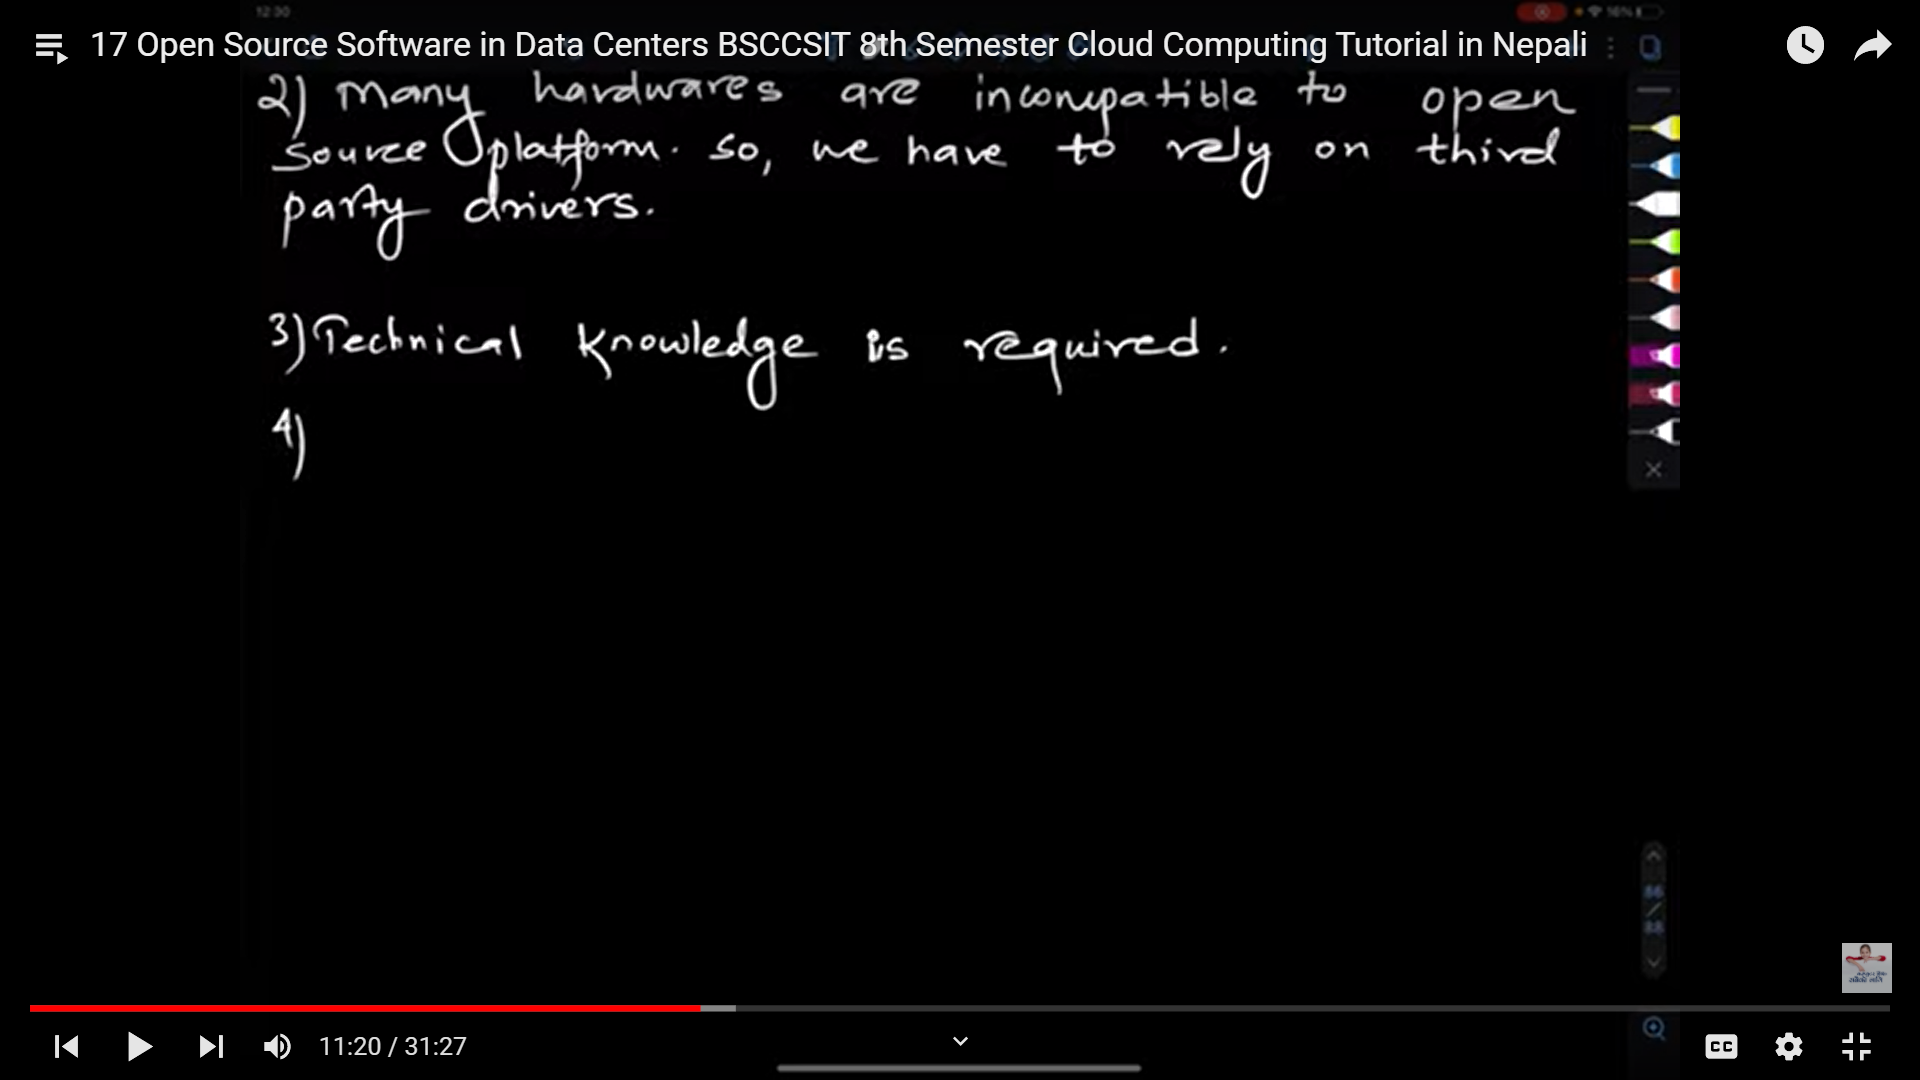 12:30
16%
17 Open Source Software in Data Centers BSCCSIT 8th Semester Cloud Computing Tutorial in Nepali
2) Many hardwares are incompatible to open
source platform. so, we have to rely on third
party drivers.
3) Technical Knowledge is required.
4)
86
/
88
11:20 / 31:27
CC